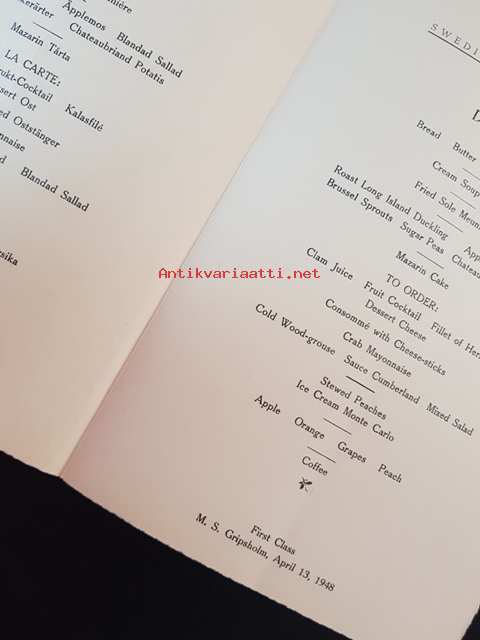 Äpplemos Blandad Sallad
Chateaubriand Potatis
Mazarin Tårta
LA CARTE:
Kalasfilé
Ost
Oststänger
Blandad Sallad
Bread Butter
Cream Soup
Fried Sole
Roast Long Island Duckling
Brussel Sprouts Sugar Peas
Mazarin Cake
TO ORDER:
Clam Juice Fruit Cocktail Fillet of
Dessert Cheese
Consommé with Cheese-sticks
Crab Mayonnaise
Cold Wood-grouse Sauce Cumberland Mixed Salad
Stewed Peaches
Ice Cream Monte Carlo
Apple Orange Grapes Peach
Coffee
First Class
M. S. Gripsholm, April 13, 1948
Antikvariaatti.net